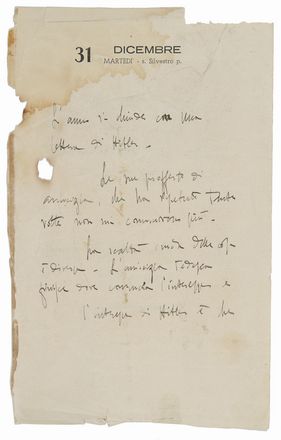 31 DICEMBRE
MARTEDÌ - s. Silvestro p.
L'anno si chiude con una
lettera di Hitler.
Le sue profferte di
amicizia che ha ripetuto tante
volte non mi commuovono più.
La realtà
è diversa. L'amicizia tedesca
finisce dove comincia l'interesse e
l'interesse di Hitler è che